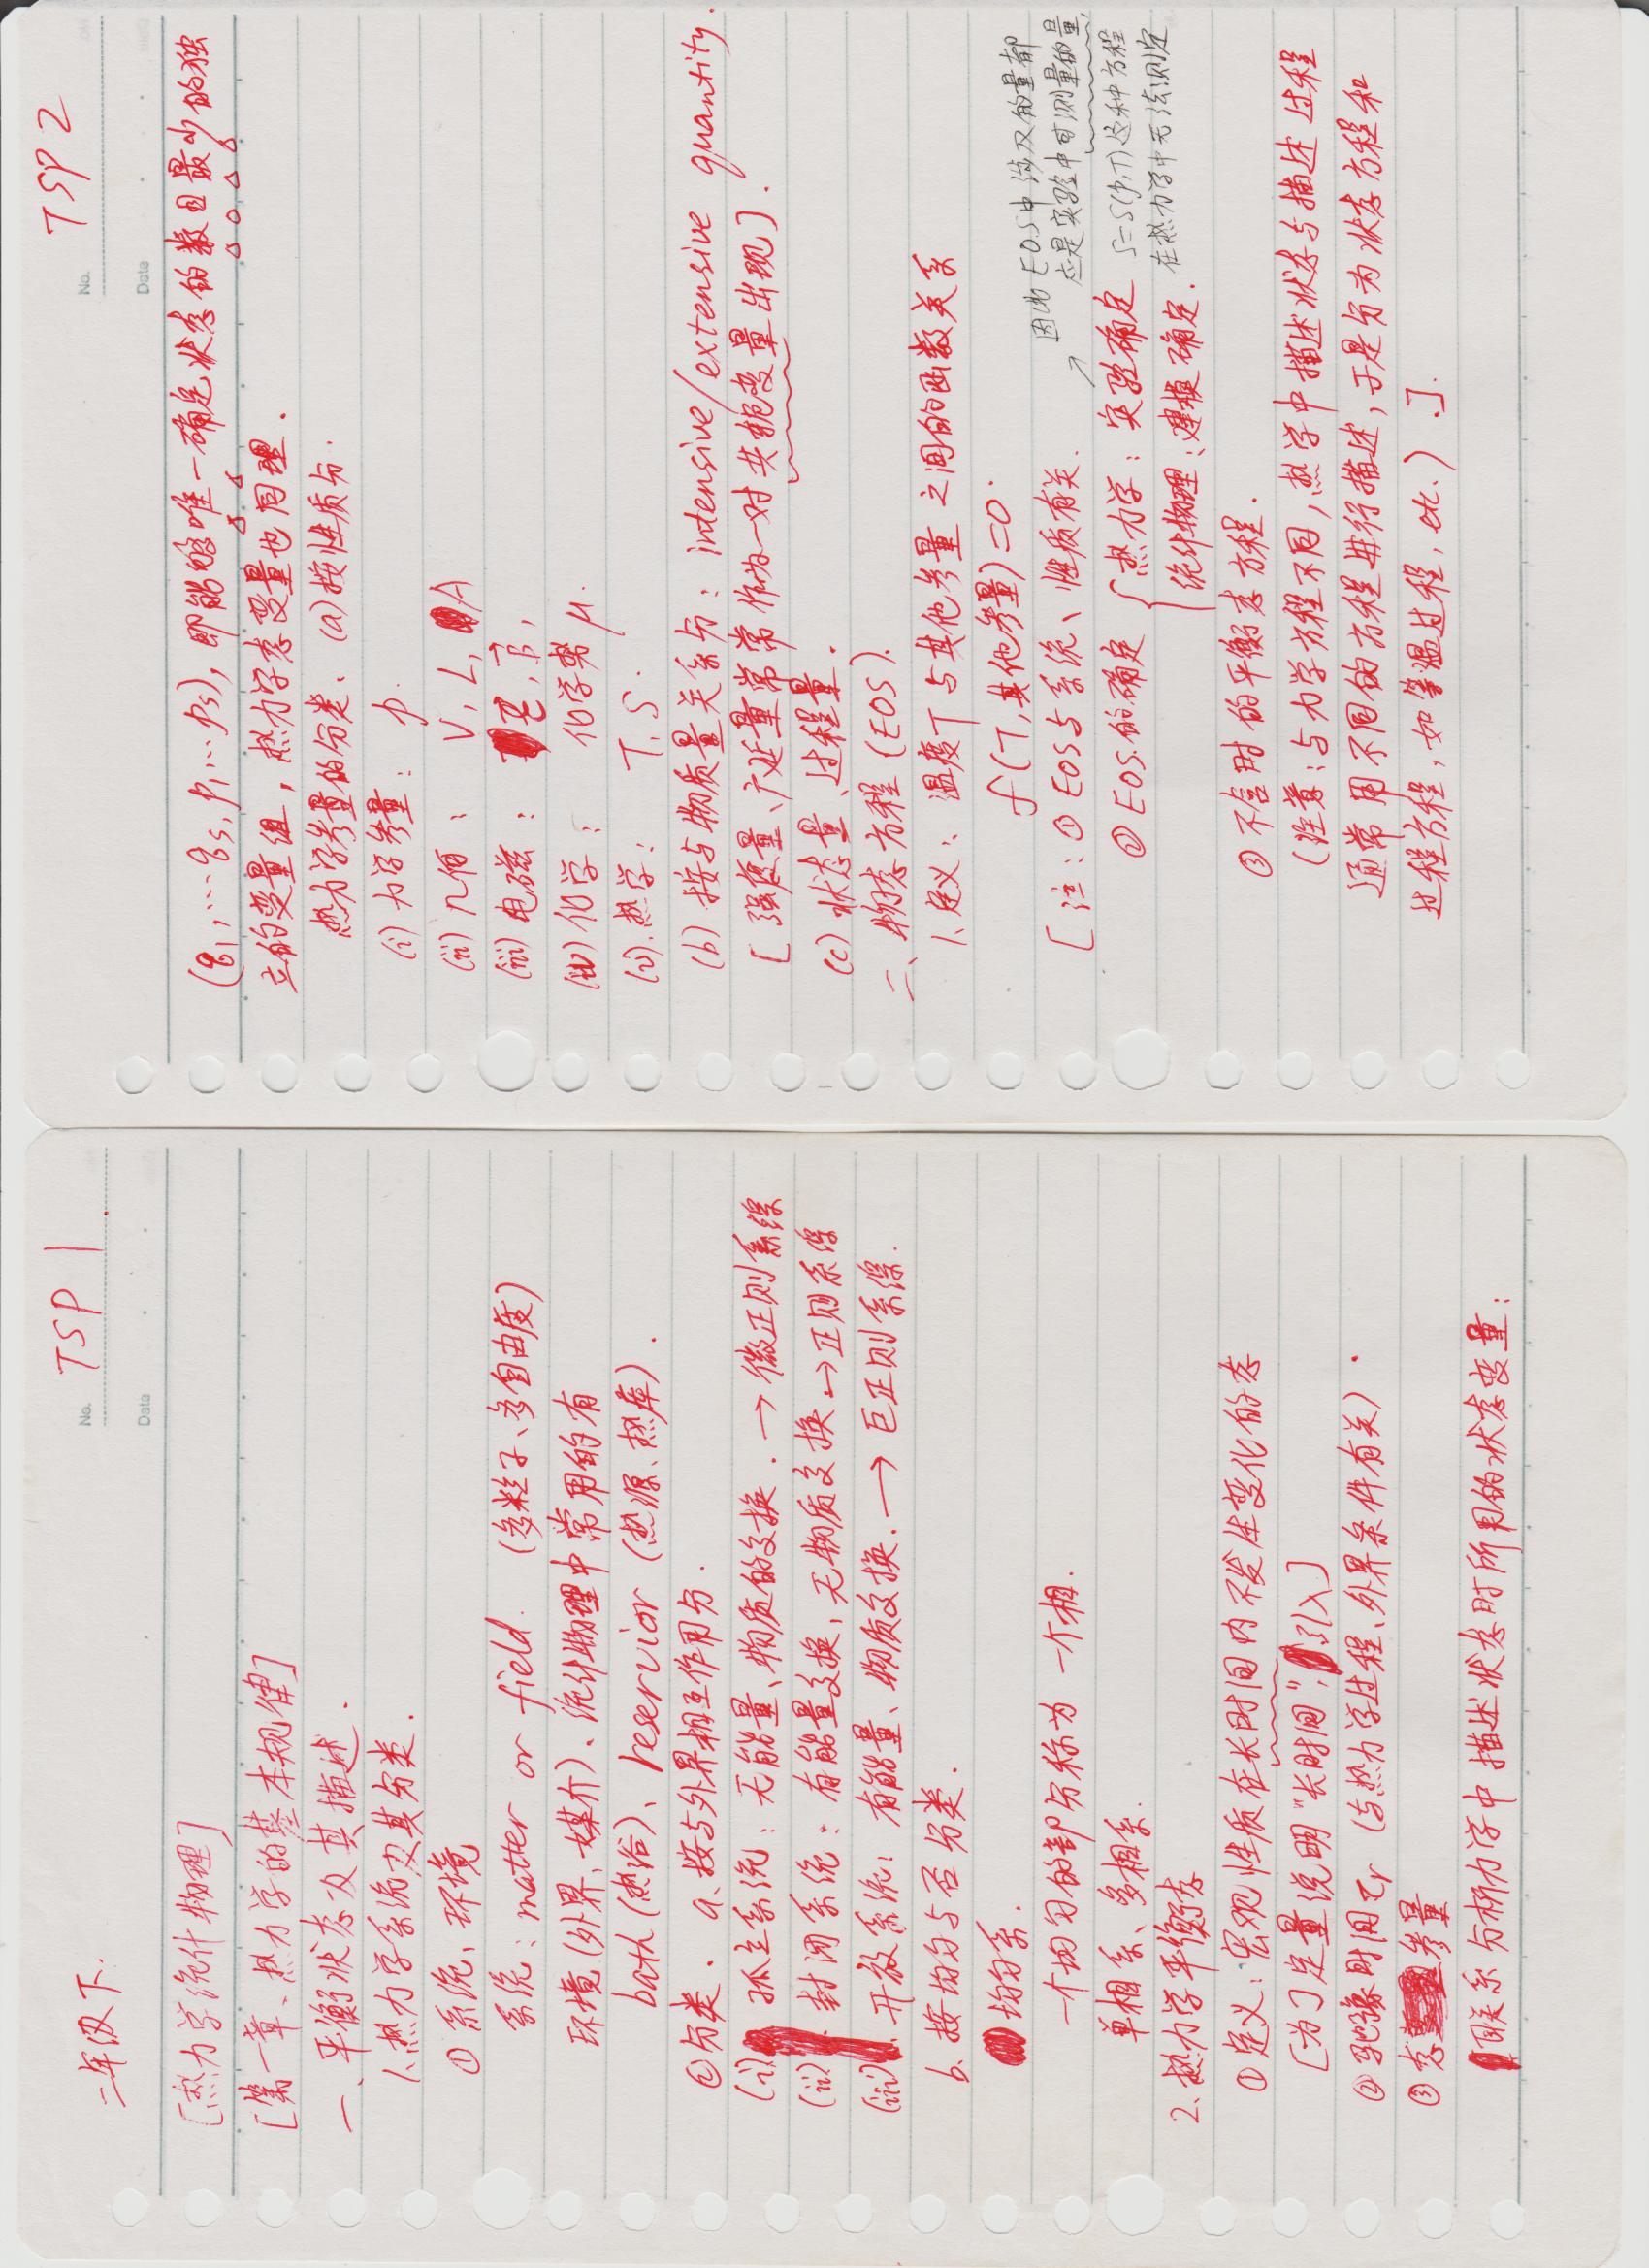 二年级下.
No. TSP 1
Date
[热力学统计物理]
[第一章、热力学的基本规律]
一、平衡状态及其描述.
1、热力学系统及其分类.
① 系统、环境
系统: matter or field. (多粒子、多自由度)
环境(外界、媒介)、统计物理中常用的有
bath(热浴)、reservior(热源、热库).
②分类. a、按与外界相互作用分.
(i) 孤立系统: 无能量、物质的交换. → 微正则系综
(ii) 封闭系统: 有能量交换, 无物质交换 → 正则系综
(iii) 开放系统: 有能量、物质交换. → 巨正则系综.
b、按均匀与否分类.
均匀系.
一个均匀的部分称为一个相.
单相系、多相系.
2、热力学平衡态
①定义: 宏观性质在长时间内不发生变化的态
[为了定量说明“长时间”, 引入]
②弛豫时间 τr (与热力学过程、外界条件有关).
③态参量
联系分析力学中描述状态时所用的状态变量:
No. TSP 2
Date
(q1,…qs, p1…ps), 即能够唯一确定状态的数目最少的独
立的变量组, 热力学态变量也同理.
热力学参量的分类. (a)按性质分.
(i) 力学参量: p.
(ii) 几何: V, L, A
(iii) 电磁: E⃗, B⃗,
(iv) 化学: 化学势 μ.
(v). 热学: T, S.
(b) 按与物质量关系分: intensive/extensive quantity.
[强度量、广延量常常作为一对共轭变量出现].
(c) 状态量、过程量.
二、物态方程(EOS).
1、定义: 温度T与其他参量之间的函数关系
f(T,其他参量)=0.
[注: ① EOS与系统、性质有关.
② EOS.的确定 { 热力学: 实验确定
统计物理: 建模确定.
因此EOS中涉及的量都
应是实验中可测量的量,
S=S(p,T)这种方程
在热力学中无法测定
③ 不含时的平衡态方程.
(注意: 与力学方程不同, 热学中描述状态与描述过程
通常用不同的方程进行描述, 于是分为状态方程和
过程方程, 如等温过程, etc.).].